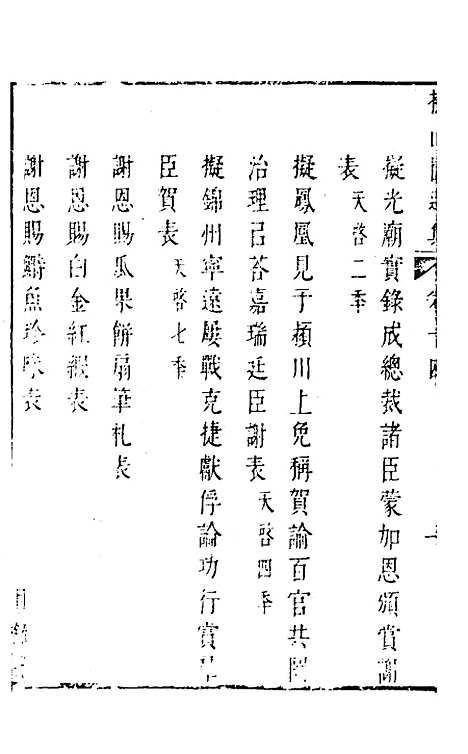 擬光廟實錄成總裁諸臣蒙加恩頒賞謝
表天啓二年
擬鳳凰見于潁川上免稱賀諭百官共圖
治理已荅嘉瑞廷臣謝表天啓四年
擬錦州寧遠屢戰克捷獻俘論功行賞羣
臣賀表天啓七年
謝恩賜瓜果餅扇筆札表
謝恩賜白金紅緞表
謝恩賜鰣魚珍味表